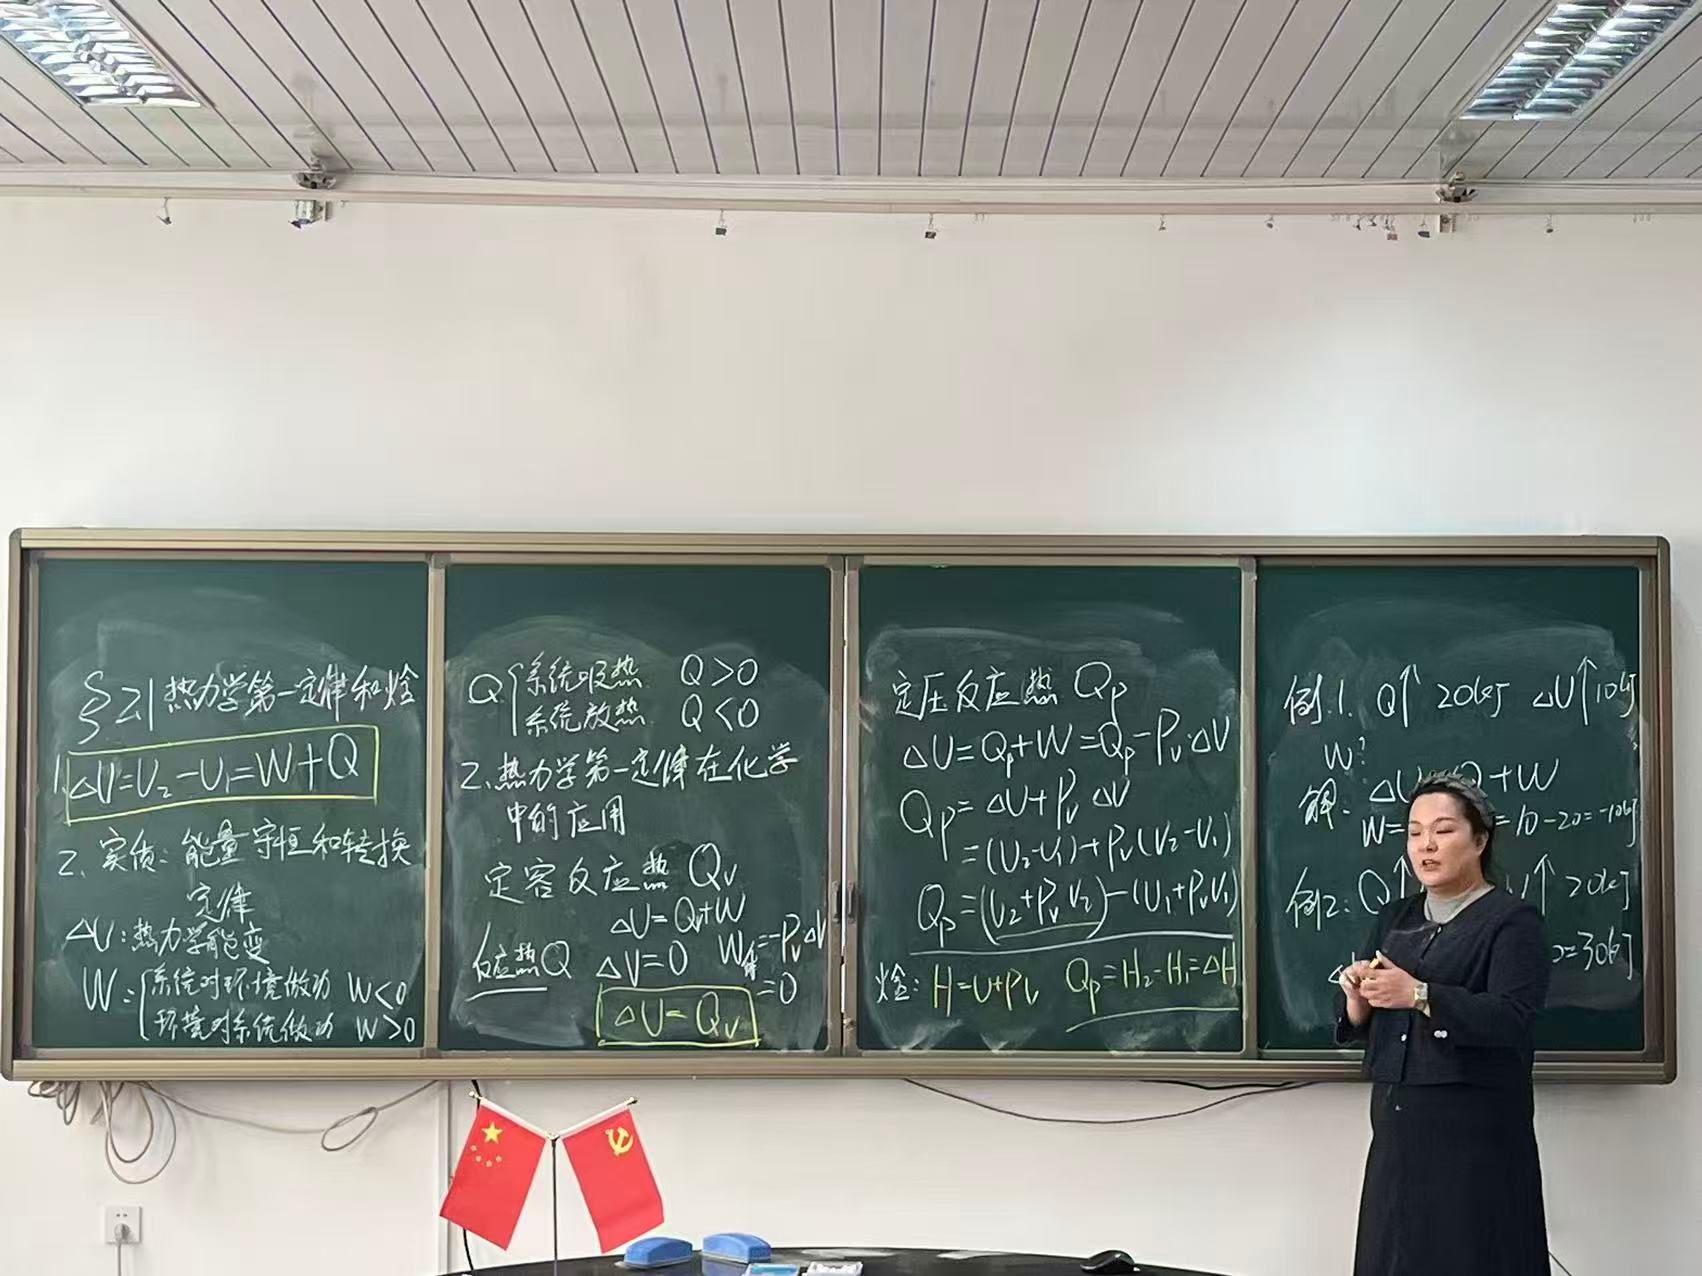 §21 热力学第一定律和焓
1. ΔU=U₂-U₁=W+Q
2. 实质：能量守恒和转换
定律
ΔU：热力学能变
W：{系统对环境做功 W<0
环境对系统做功 W>0
Q{系统吸热 Q>0
系统放热 Q<0
2、热力学第一定律在化学
中的应用
定容反应热 Qv
ΔU=Qv+W
反应热Q ΔV=0 W体=-Pv·ΔV
=0
ΔU=Qv
定压反应热 Qp
ΔU=Qp+W=Qp-Pv·ΔV
Qp=ΔU+Pv ΔV
=(U₂-U₁)+Pv(V₂-V₁)
Qp=(U₂+PvV₂)-(U₁+PvV₁)
焓：H=U+Pv Qp=H₂-H₁=ΔH
例.1. Q↑ 20kJ ΔU↑10kJ
W？
解：ΔU=Q+W
W= =10-20=-10kJ
例2：Q↑ U↑ 20kJ
=30kJ